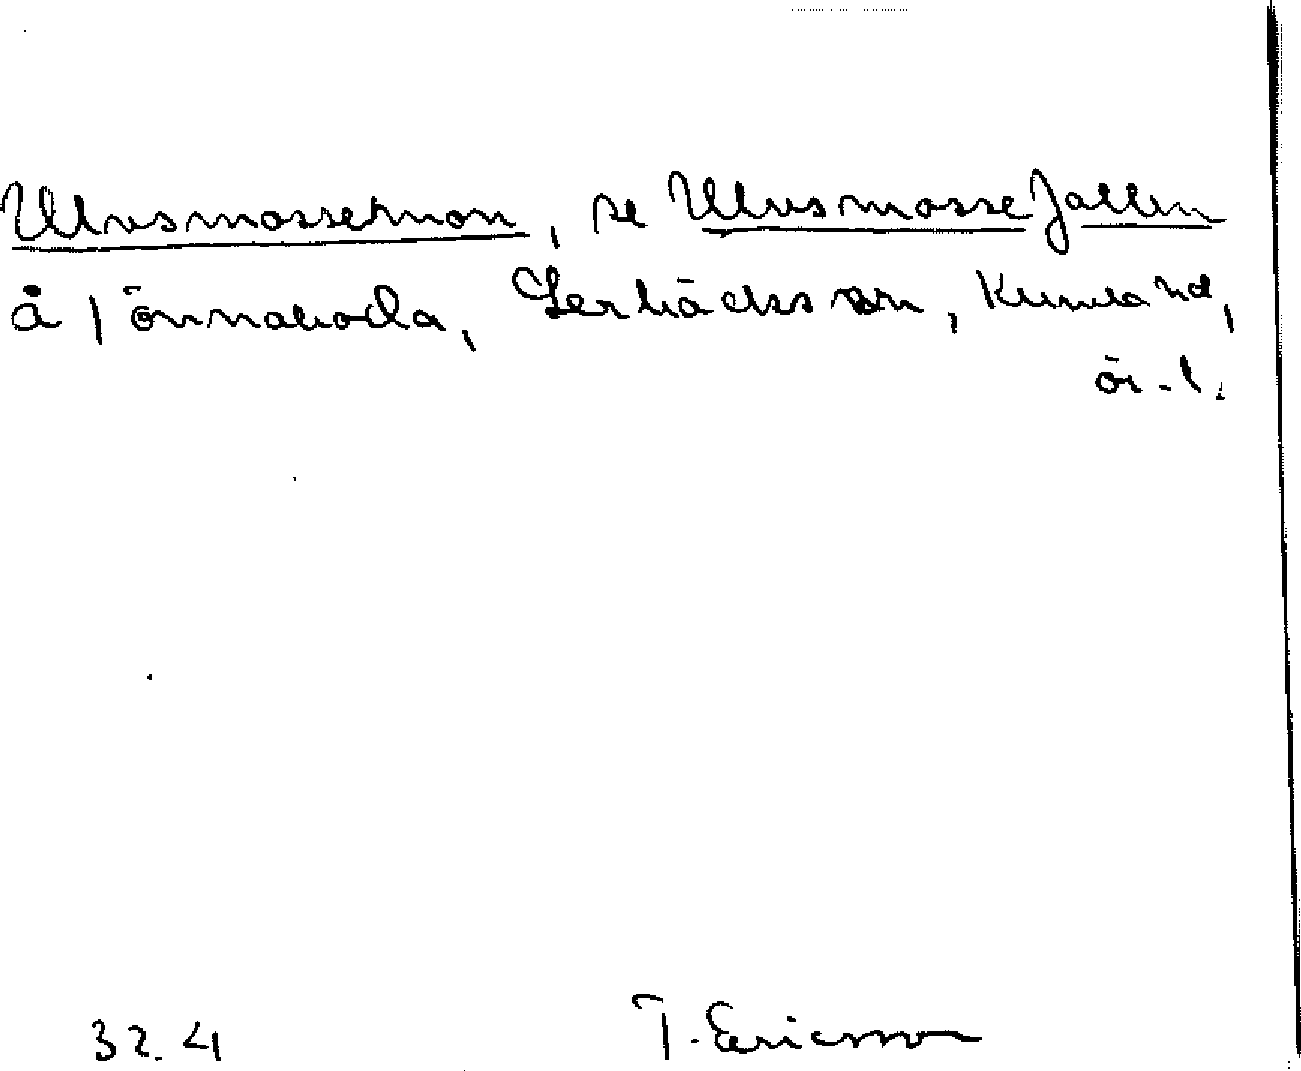 Ulvsmossemon, se Ulvsmossefallen
å Tönnaboda, Lerbäcks sn, Kumla hd,
ör. l.
32.4 T. Ericsson